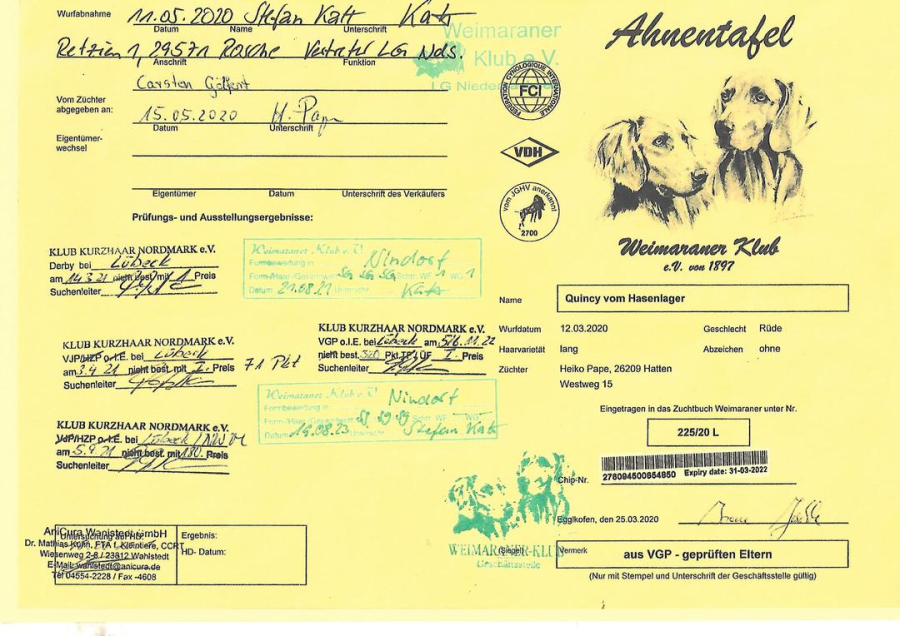 Wurfabnahme 11.05.2020 Stefan Katt Katt
Datum Name Unterschrift
Retzien 1, 29571 Rosche Vertreter LG Nds.
Anschrift Funktion
Carsten
Vom Züchter
abgegeben an: 15.05.2020 H. Pape
Datum Unterschrift
Eigentümer-
wechsel
Eigentümer Datum Unterschrift des Verkäufers
Prüfungs- und Ausstellungsergebnisse:
KLUB KURZHAAR NORDMARK e.V.
Derby bei Lübeck
am 14.3.21 nicht best./mit 1 Preis
Suchenleiter
Weimaraner Klub e.V.
Formbewertung in Nindorf
Form-/Haar-/Gesamtwert sg sg sg Schr. WF 1 WG 1
Datum 21.08.21 Unterschr. Katt
KLUB KURZHAAR NORDMARK e.V.
VJP/HZP o.l.E. bei Lübeck
am 3.4.21 nicht best. mit I. Preis 71 Pkt
Suchenleiter
KLUB KURZHAAR NORDMARK e.V.
VGP o.l.E. bei Lübeck am 5/6.11.22
nicht best. 320 Pkt TF / ÜF I. Preis
Suchenleiter
Weimaraner Klub e.V.
Formbewertung in Nindorf
Datum 19.08.23 Stefan Katt
KLUB KURZHAAR NORDMARK e.V.
VJP/HZP o.l.E. bei Lübeck
am 5.9.21 nicht best. mit 180. Preis
Suchenleiter
AniCura Wahlstedt GmbH
Untersuchung auf HD:
Dr. Mathias Kühn, FTA f. Kleintiere, CCRT
Wiesenweg 2-8 / 23812 Wahlstedt
E-Mail: wahlstedt@anicura.de
Tel 04554-2228 / Fax -4608
Ergebnis:
HD- Datum:
Weimaraner
Klub e.V.
LG Niedersachsen
FÉDÉRATION CYNOLOGIQUE INTERNATIONALE
FCI
VDH
vom JGHV anerkannt
2700
Ahnentafel
Weimaraner Klub
e.V. von 1897
Name Quincy vom Hasenlager
Wurfdatum 12.03.2020 Geschlecht Rüde
Haarvarietät lang Abzeichen ohne
Züchter Heiko Pape, 26209 Hatten
Westweg 15
Eingetragen in das Zuchtbuch Weimaraner unter Nr.
225/20 L
Chip-Nr. 276094500654850 Expiry date: 31-03-2022
Egglkofen, den 25.03.2020
WEIMARANER-KLUB
Geschäftsstelle
(Siegel)
Vermerk aus VGP - geprüften Eltern
(Nur mit Stempel und Unterschrift der Geschäftsstelle gültig)